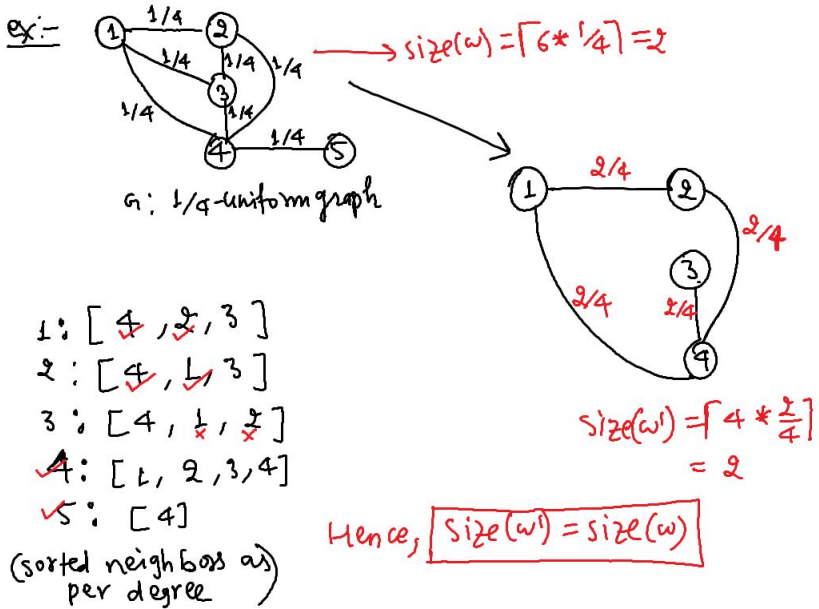 ex:-
1/4
1 2
1/4 1/4 1/4
3
1/4 1/4
4 1/4 5
G: 1/4-uniform graph
size(w) = ⌈6 * 1/4⌉ = 2
2/4
1 2
2/4
3
2/4 2/4
4
size(w') = ⌈4 * 2/4⌉
= 2
1: [4, 2, 3]
2: [4, 1, 3]
3: [4, 1, 2]
4: [1, 2, 3, 4]
5: [4]
(sorted neighbors as)
per degree
Hence, size(w') = size(w)